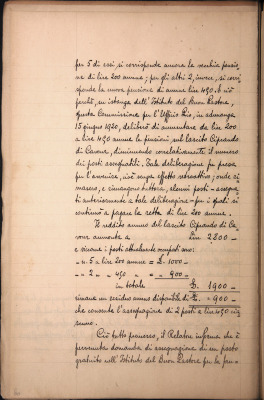 per 5 di essi, si corrisponde ancora la vecchia pensio,
ne di lire 200 annue; per gli altri 2, invece, si corri
sponde la nuova pensione di annue lire 450. E ciò
perchè, su istanza dell'Istituto del Buon Pastore,
questa Commissione per l'Ufficio Pio, in adunanza
15 giugno 1920, deliberò di aumentare da lire 200
a lire 450 annue le pensioni sul lascito Cipriando
di Cavour, diminuendo correlativamente il numero
dei posti assegnabili. Tale deliberazione fu presa
per l'avvenire, cioè senza effetto retroattivo; onde ri
masero, e rimangono tuttora, alcuni posti - assegna
ti anteriormente a tale deliberazione - per i quali si
continuò a pagare la retta di lire 200 annue.
Il reddito annuo del lascito Cipriando di Ca
vour ammonta a Lire 2800 =
e siccome i posti attualmente occupati sono:
- n. 5 a lire 200 annue = £. 1000 -
- " 2 " " 450 " = " 900 -
in totale £. 1900 =
rimane un residuo annuo disponibile di £. = 900 =
che consente l'assegnazione di 2 posti a lire 450 cia
scuno.
Ciò tutto premesso, il Relatore informa che è
pervenuta domanda di assegnazione di un posto
gratuito nell'Istituto del Buon Pastore per la fan=